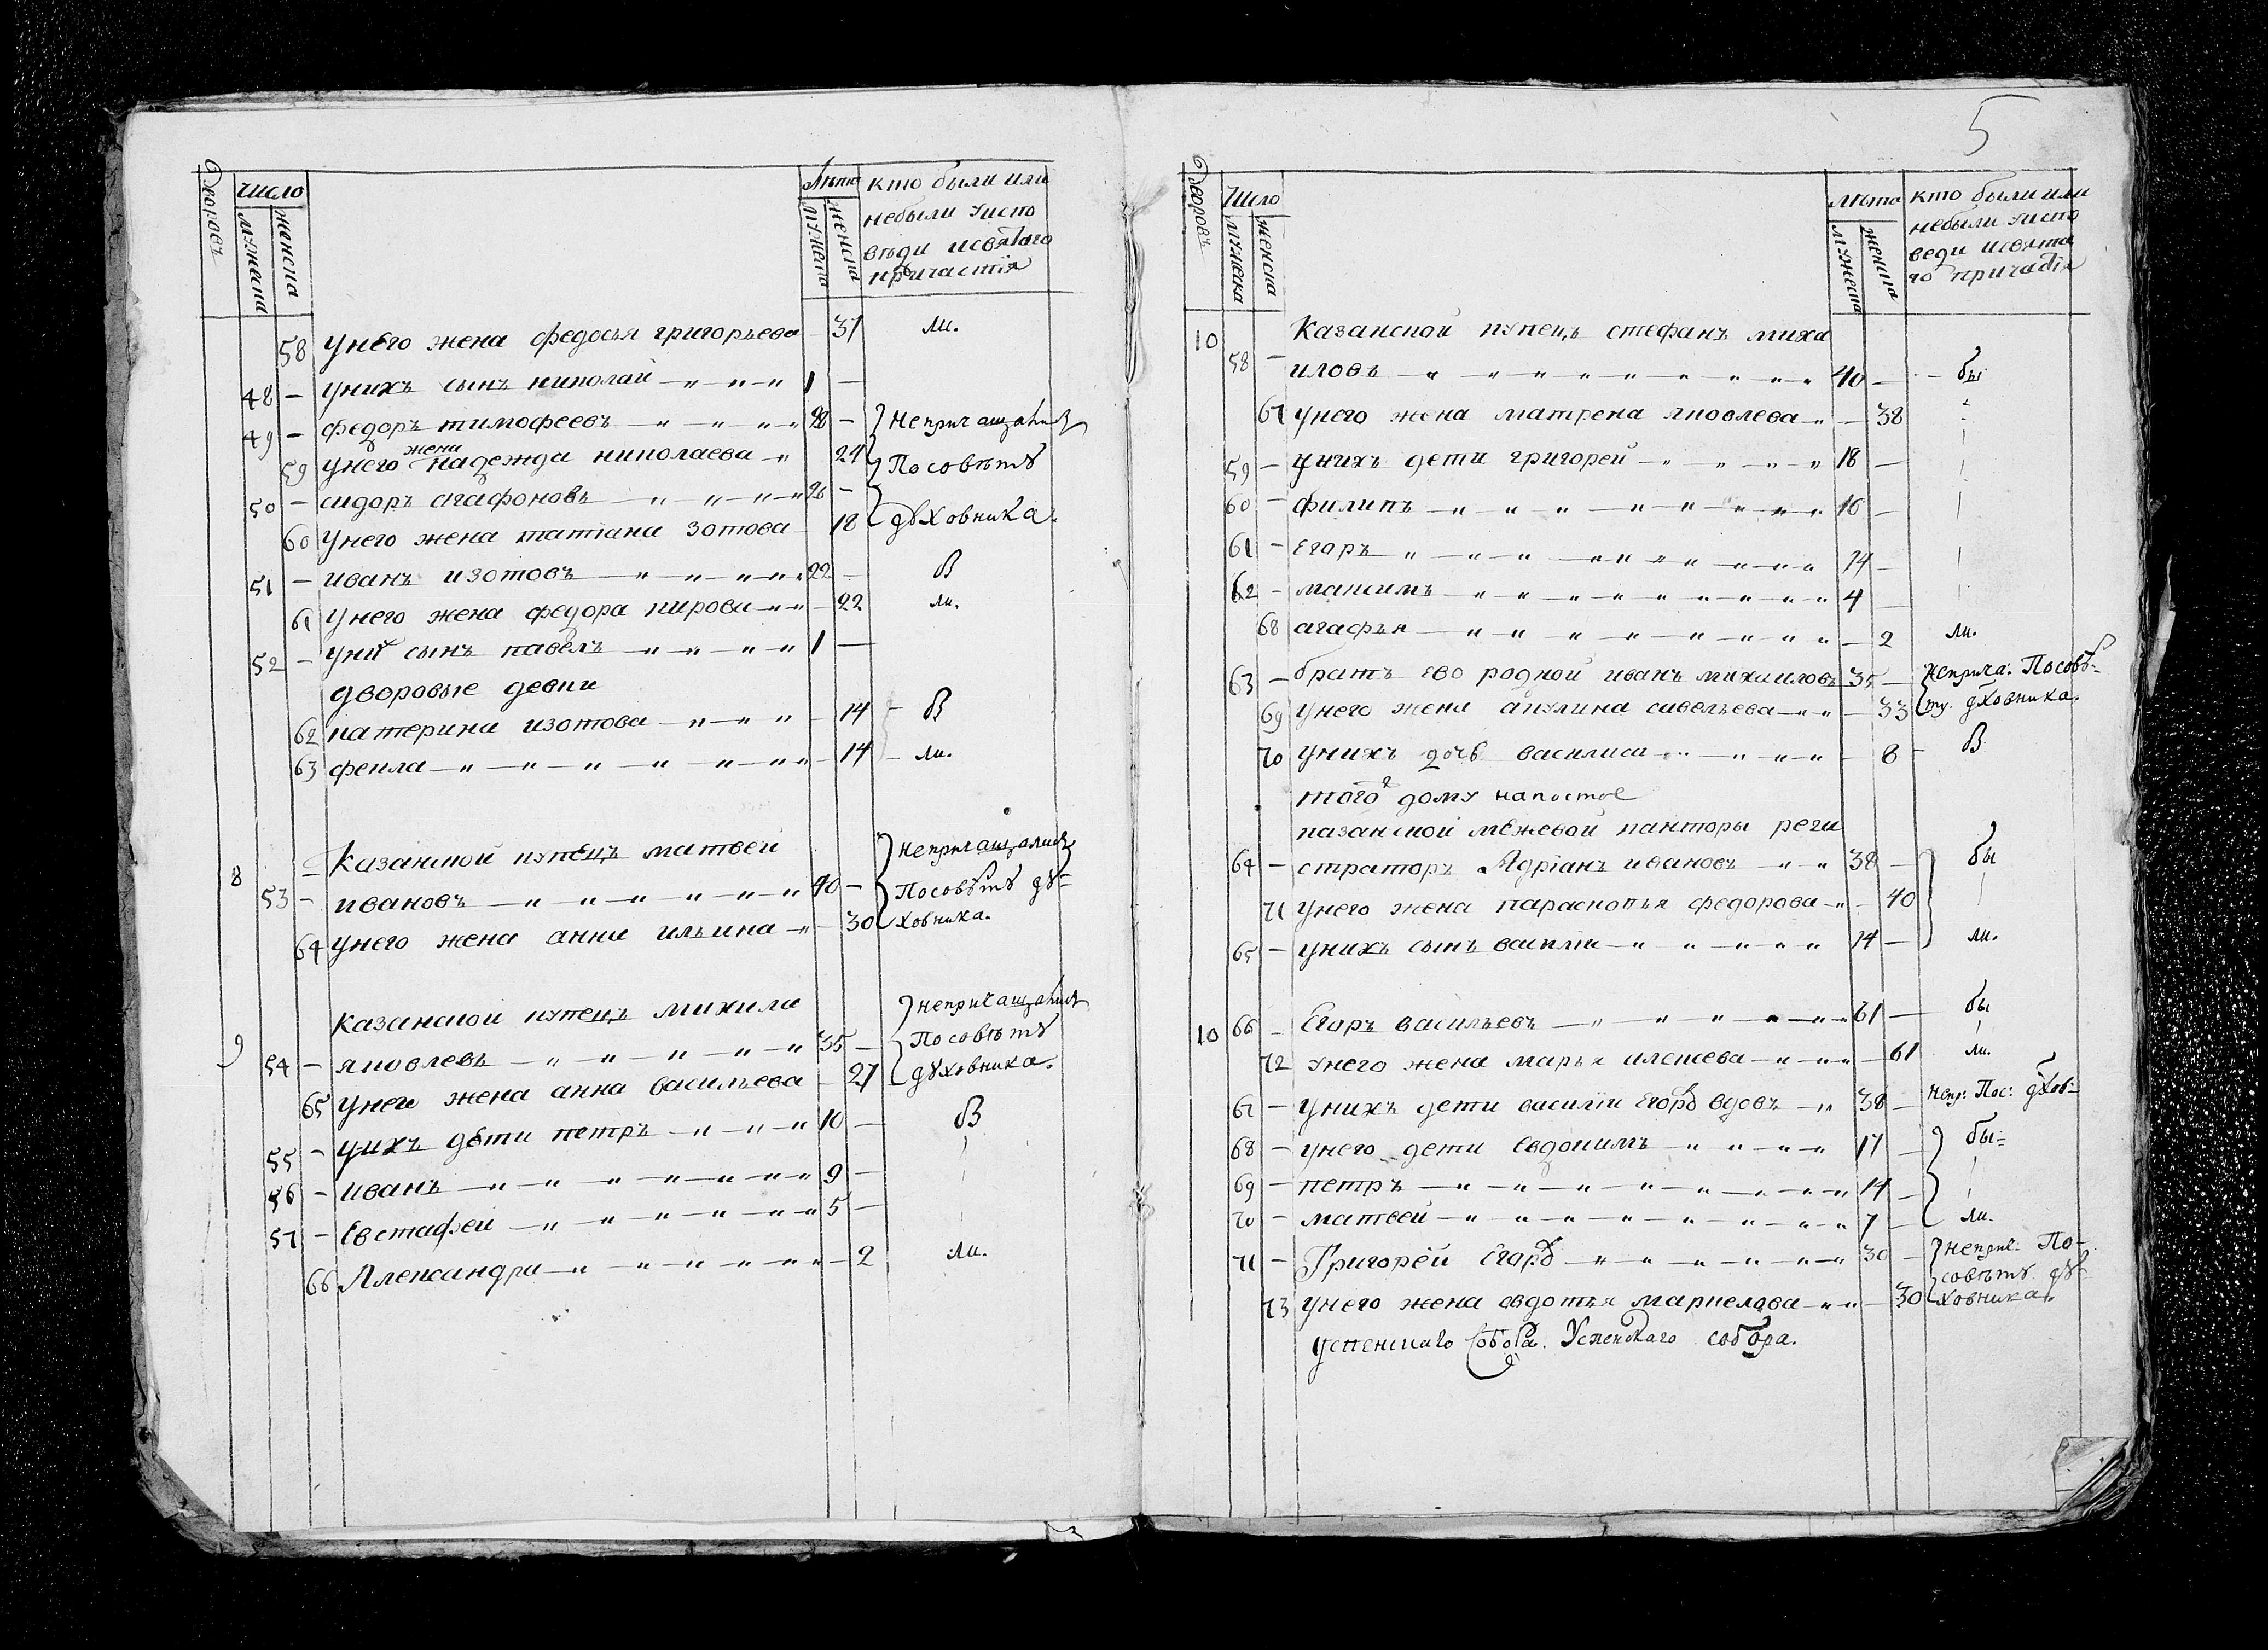 дворовъ
число
мужеска
женска
лѣта
мужеска
женска
кто были или
небыли уиспо
вѣди исвятаго
причастія
58 унего жена федосья григорьева 37 ли.
48 — унихъ сынъ николай 1 —
49 — федоръ тимофеевъ 28 — Непричащались
жена
59 унего надежда николаева 24 Посовѣтꙋ
50 — сидоръ агафоновъ 26 —
60 унего жена татіана зотова 18 дꙋховника.
51 — иванъ изотовъ 22 — В
61 унего жена федора кирова 22 ли.
52 — уни сынъ павелъ 1 —
дворовые девки
62 катерина изотова 14 В
63 фекла 14 ли.
8 Казанской купецъ матвей непричащались
53 — ивановъ 40 — Посовѣтꙋ дꙋ=
64 унего жена анна ильина 30 ховника.
Казанской купецъ михаила непричащались
9 54 — яковлевъ 35 — Посовѣтꙋ
65 унего жена анна васильева 27 дꙋховника.
55 — унихъ дети петръ 10 — В
56 — иванъ 9 —
57 — Евстафей 5 —
66 Александра 2 ли.
5
дворовъ
Число
мужеска
женска
лѣта
мужеска
женска
кто были или
небыли уиспо
веди исвята
го причастія
10 Казанской купецъ стефанъ миха
58 — иловъ 40 — бы
67 унего жена матрена яковлева — 38
59 — унихъ дети григорей 18 —
60 — филипъ 16 —
61 — Егоръ 14 —
62 — максимъ 4 —
68 агафья — 2 ли.
63 — братъ ево родной иванъ михаиловъ 35 — неприча: Посовѣ=
69 унего жена акулина савельева — 33 тꙋ. дꙋховника.
70 унихъ дочь василиса 8 — В
того дому напостое
казанской межевой канторы реги
64 — страторъ Адріанъ ивановъ 38 — бы
71 унего жена парасковья федорова — 40
65 — унихъ сынъ василіи 14 — ли.
10 66 — Егоръ васильевъ 61 — бы
72 унего жена марья илсиева — 61 ли.
67 — унихъ дети василіи Егоръ вдовъ 38 — непр: Пос: дꙋхов=
68 — унего дети Евдокимъ 17 — бы=
69 — петръ 14 —
70 — матвей 7 — ли.
71 — Григорей Егоръ 30 — неприч= По=
совѣтꙋ дꙋ=
73 унего жена овдотья маркелова 30 ховника.
успенскаго собора. Успенскаго собора.